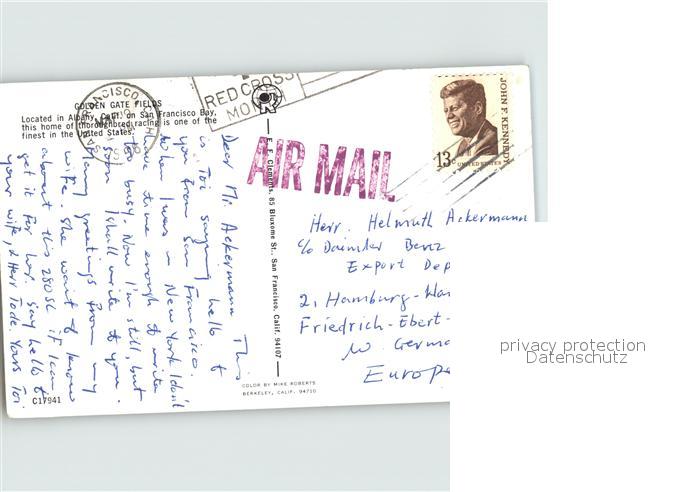 GOLDEN GATE FIELDS
Located in Albany, Calif. on San Francisco Bay,
this home of thoroughbred racing is one of the
finest in the United States.
RED CROSS
MONTH
JOHN F. KENNEDY
13¢
UNITED STATES
AIR MAIL
E. F. Clements, 85 Bluxome St., San Francisco, Calif. 94107
Dear Mr. Ackermann This
is Toi saying hello to
you from San Francisco.
When I was in New York I didn't
have time enough to write
too busy. Now I'm still, but
soon I shall write to you.
Many greetings from my
wife. She want to know
about this 280SL if I can
get it for her. Say hello to
your wife, & Herr Tode, Yours Toi
Herr. Helmuth Ackermann
c/o Daimler Benz
Export Dep
2, Hamburg-Wan
Friedrich-Ebert-
W. Germa
Europe
COLOR BY MIKE ROBERTS
BERKELEY, CALIF. 94710
C17941
privacy protection
Datenschutz